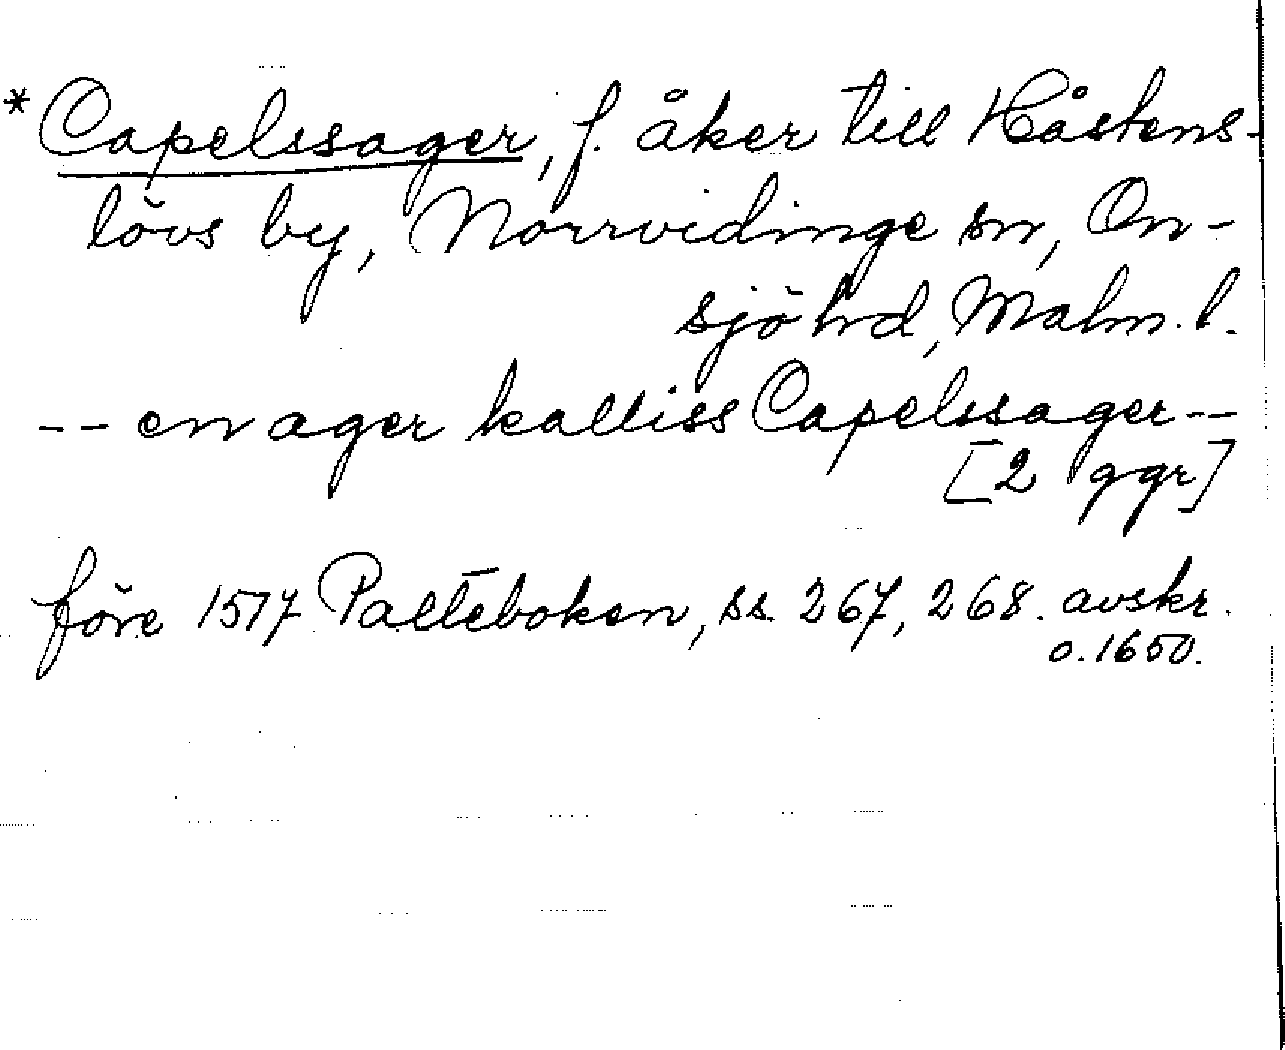 * Capelssager, f. åker till Håstens-
lövs by, Norrvidinge sn, On-
sjö hrd, Malm. l.
-- en ager kalliss Capelssager --
[2 ggr]
före 1517 Palteboken, ss. 267, 268. avskr.
o. 1650.